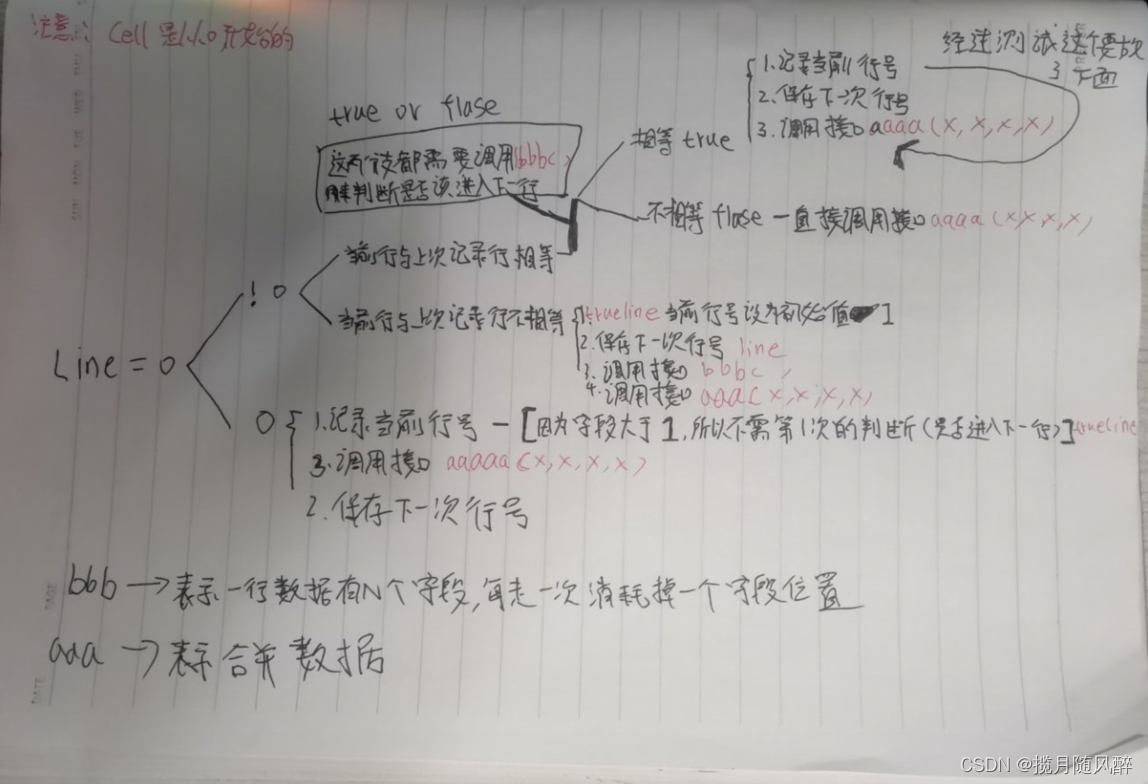 注意: Cell 是从0开始的
经过测试这个要放
到下面
true or flase
这两个该都需要调用bbbc)
来判断是否该进入下一行
相等 true
1.记录当前行号
2.保存下一次行号
3.调用接口 aaaa(x,x,x,x)
不相等 flase — 直接调用接口 aaaa(x,x,x,x)
当前行与上次记录行相等
! 0
当前行与上次记录行不相等
1.trueline 当前行号设为初始值 1
2.保存下一次行号 line
3.调用接口 bbbc,
4.调用接口 aaa(x,x,x,x)
Line = 0
0
1.记录当前行号 — [因为字段大于1,所以不需第1次的判断(是否进入下一行)] trueline
3.调用接口 aaaaa(x,x,x,x)
2.保存下一次行号
bbb → 表示一行数据有N个字段,每走一次消耗掉一个字段位置
aaa → 表示合并数据
PAGE
DATE
CSDN @揽月随风醉